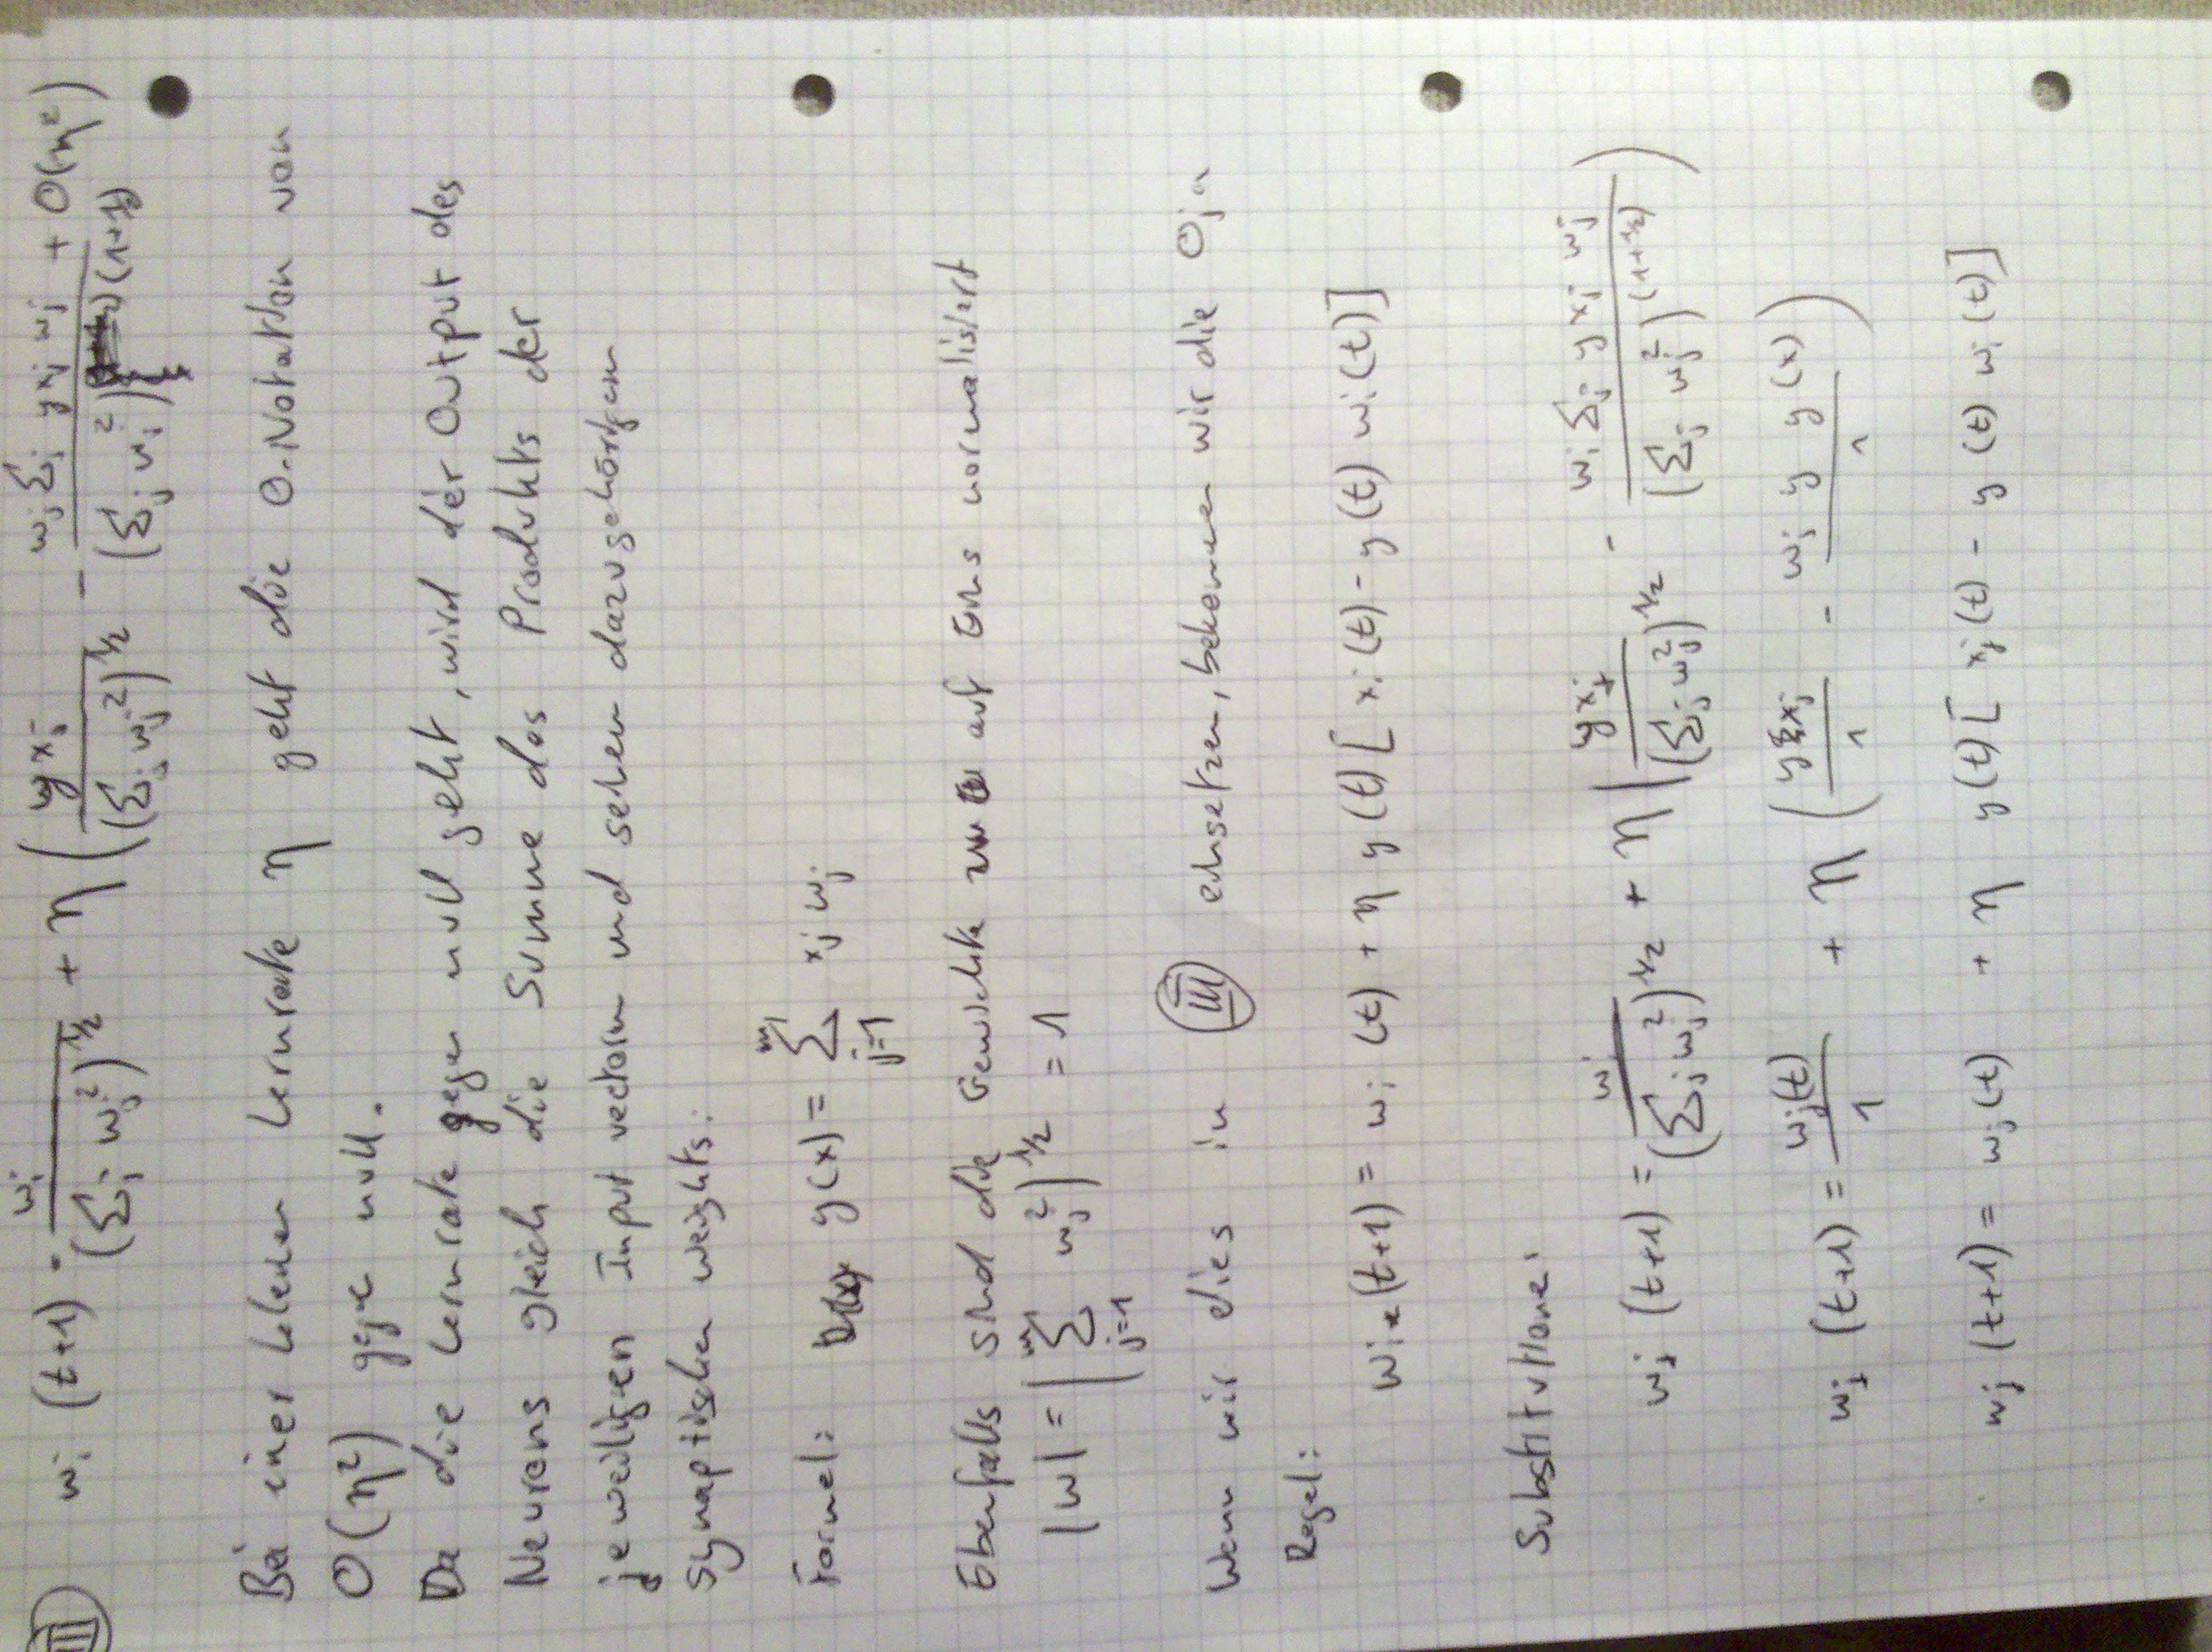 III w_i (t+1) = w_i / (Σ_j w_j²)^1/2 + η ( y x_i / (Σ_j w_j²)^1/2 - w_i Σ_j y x_j w_j / (Σ_j w_j²)^(1+½) + O(η²) )
Bei einer kleinen Lernrate η geht die O-Notation von
O(η²) gegen null.
Da die Lernrate gegen null geht, wird der Output des
Neurons gleich die Summe des Produkts der
jeweiligen Input vectorn und seinen dazugehörigen
synaptischen weights:
Formel: y(x) = Σ_{j=1}^{m} x_j w_j
Ebenfalls sind die Gewichte auf Eins normalisiert
|w| = ( Σ_{j=1}^{m} w_j² )^1/2 = 1
Wenn wir dies in III einsetzen, bekommen wir die Oja
Regel:
w_i (t+1) = w_i (t) + η y(t) [ x_i (t) - y(t) w_i (t) ]
Substitutione:
w_j (t+1) = w_i / (Σ_j w_j²)^1/2 + η ( y x_j / (Σ_j w_j²)^1/2 - w_i Σ_j y x_j w_j / (Σ_j w_j²)^(1+1/2) )
w_j (t+1) = w_j(t) / 1 + η ( y x_j / 1 - w_i y y(x) / 1 )
w_j (t+1) = w_j(t) + η y(t) [ x_j (t) - y (t) w_i (t) ]